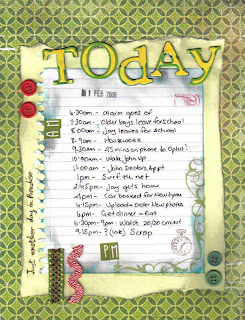 TODAY
1 FEB 2008
AM
6:30am - alarm goes off
7:30am - Older boys leave for School
8:00am - Jay leaves for School
8-9am - Housework
9:30am - 45 mins on phone to Optus!
10:00am - Wake John up
11:00am - John Doctors Appt
1pm - Surf the net
2:45pm - Jay gets home
4pm - Car booked for New tyres
4:15pm - Upload & Order New photos
6pm - Get dinner - Eat
6:30pm - 9pm - Watch 20/20 cricket
9:15pm - ? (late) Scrap
PM
Just another day in Paradise